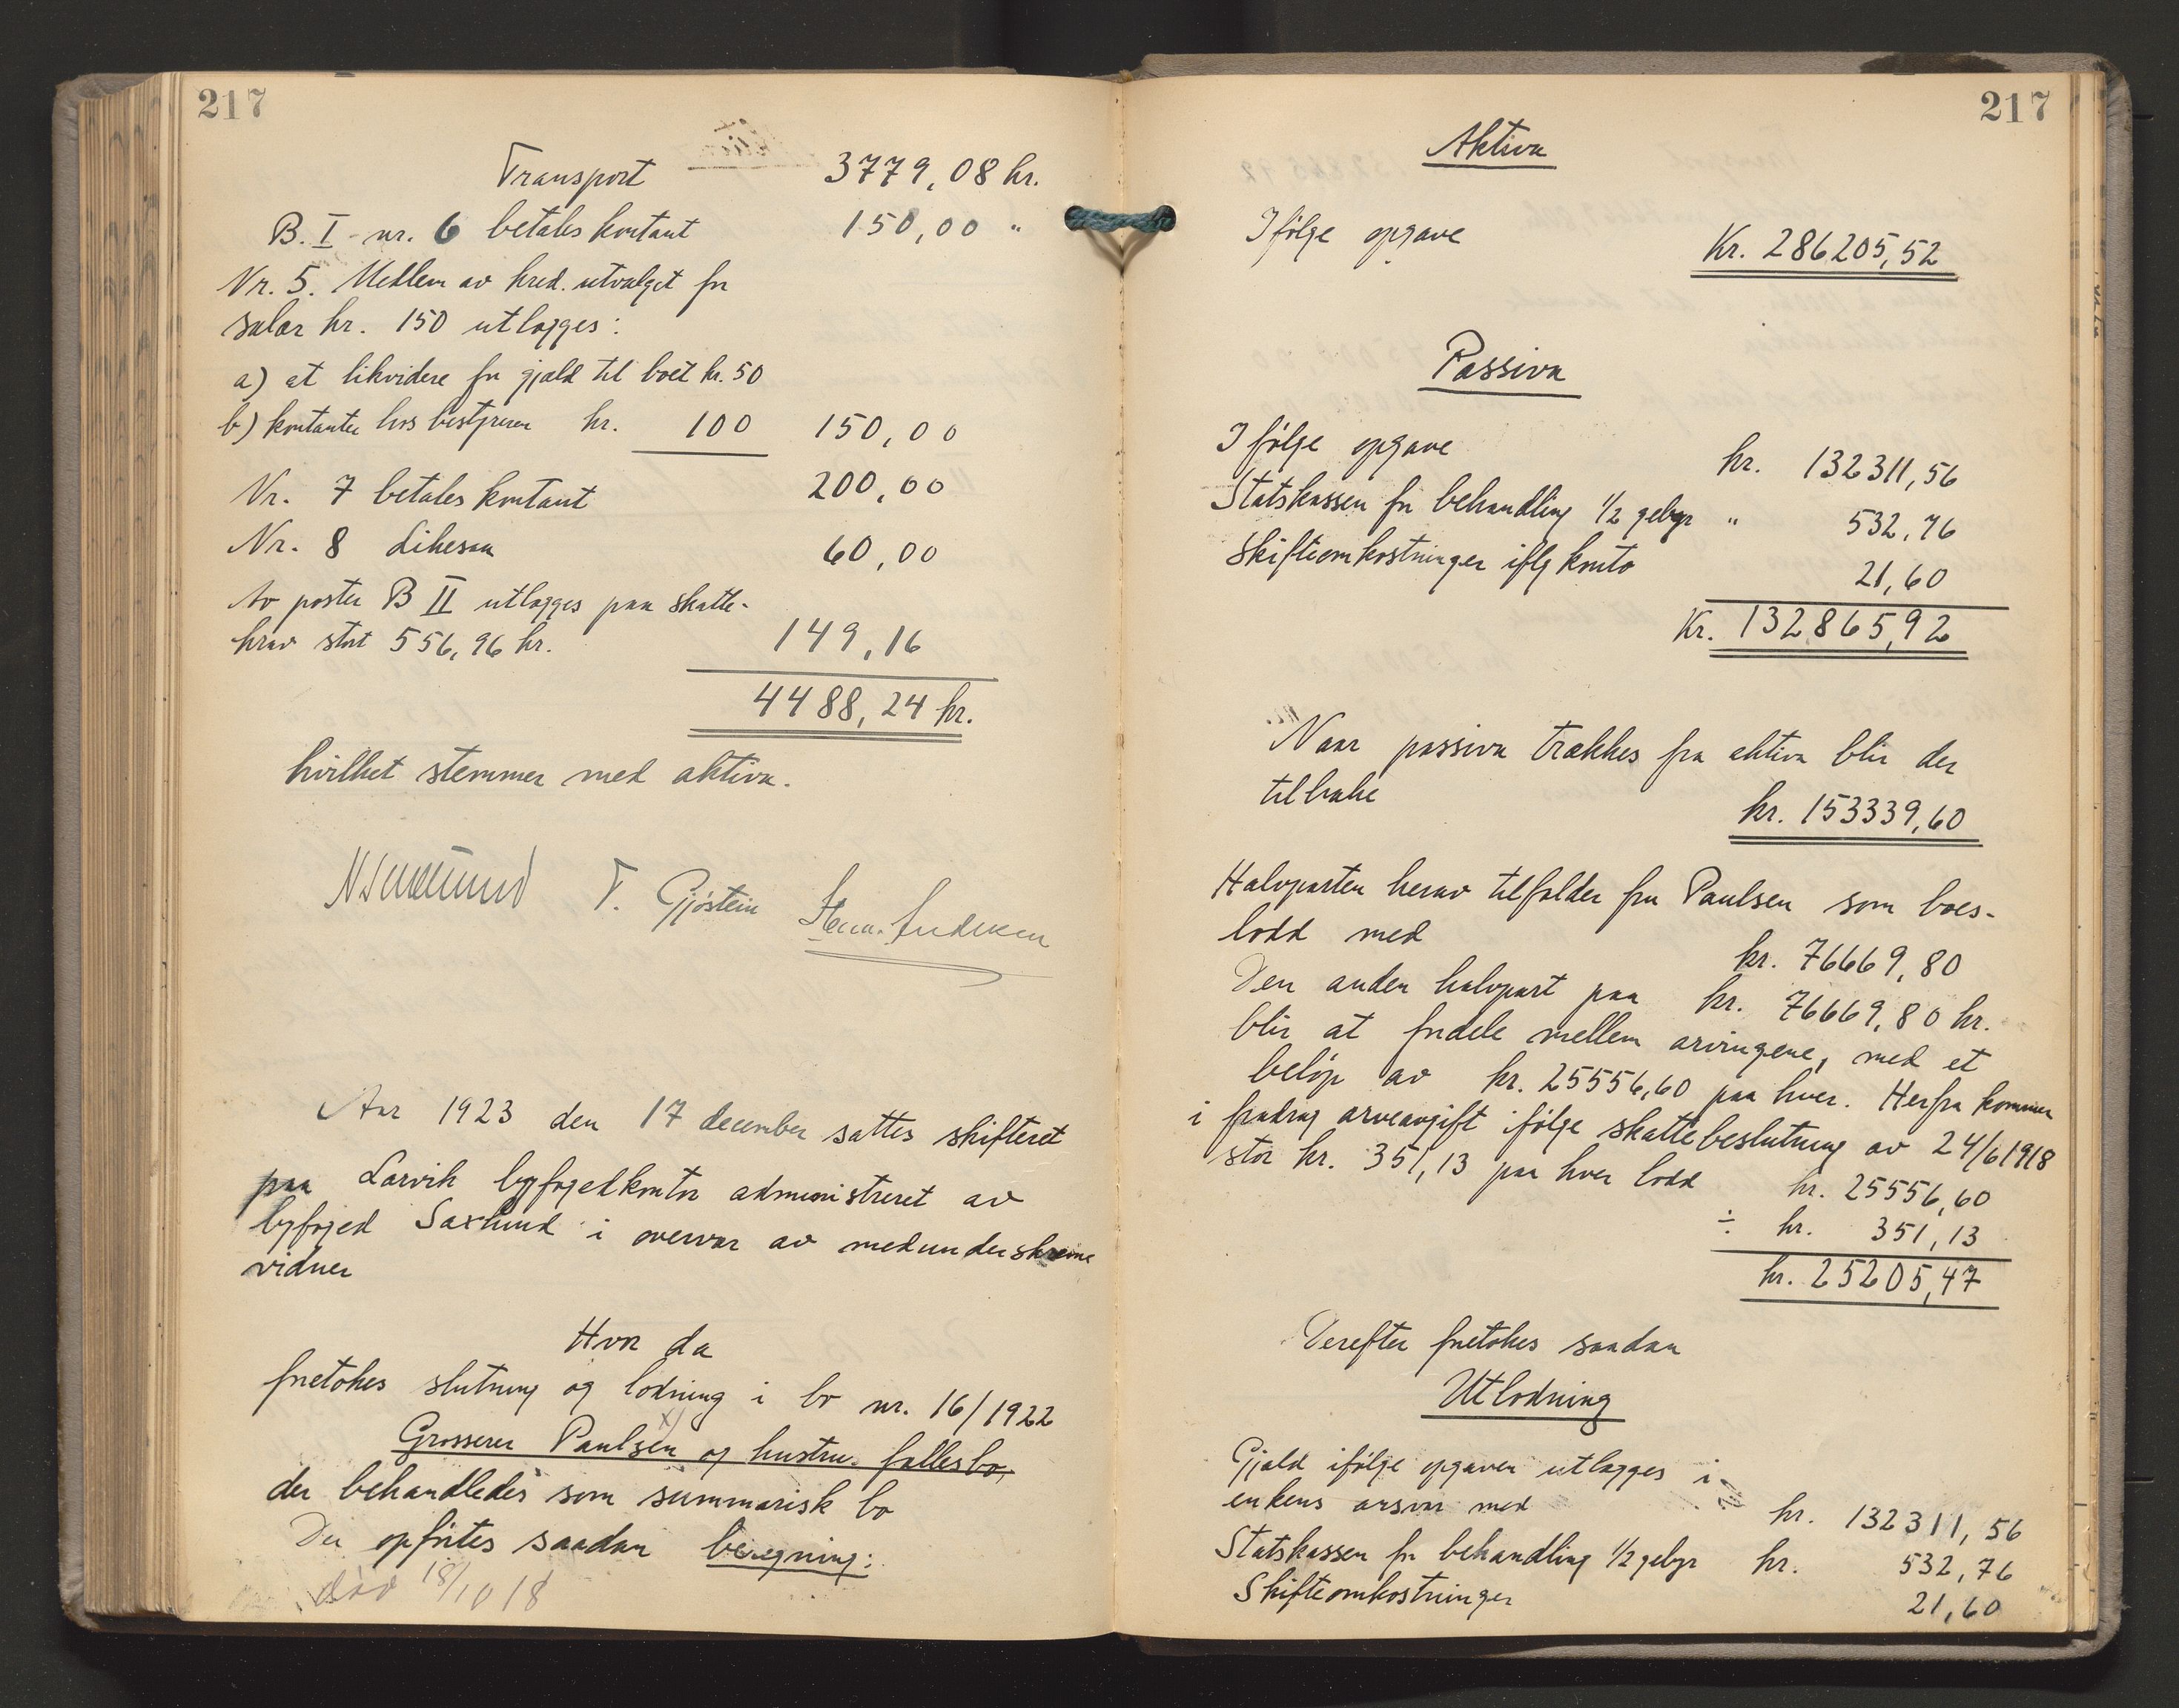 217
Transport 3779,08 kr.
B. I - nr. 6 betales kontant 150,00 "
Nr. 5. Medlem av kred. utvalget for
salær kr. 150 utlægges:
a) at likvidere for gjæld til boet kr. 50
b) kontanter hos bestyreren kr. 100 150,00
Nr. 7 betales kontant 200,00
Nr. 8 Likesaa 60,00
Av poster B II utlægges paa skatte-
krav stort 556,96 kr. 149,16
4488,24 kr.
hvilket stemmer med aktiva.
T. Gjöstein
Aar 1923 den 17 december sattes skifteret
paa Larvik byfogedkontor administreret av
byfoged Saxlund i overvær av medunderskrevne
vidner
Hvor da
foretokes slutning og lodning i bo nr. 16/1922
x)
Grosserer Paulsen og hustru fællesbo,
der behandledes som summarisk bo
Der opførtes saadan beregning:
død 18/10 18
217
Aktiva
Ifølge opgave Kr. 286205,52
Passiva
Ifølge opgave kr. 132311,56
Statskassen for behandling 1/2 gebyr " 532,76
Skifteomkostninger iflg konto 21,60
Kr. 132865,92
Naar passiva trækkes fra aktiva blir der
tilbake kr. 153339,60
Halvparten herav tilfalder fru Paulsen som boes-
lodd med kr. 76669,80
Den anden halvpart paa kr. 76669,80 kr.
blir at fordele mellem arvingene, med et
beløp av kr. 25556,60 paa hver. Herfra kommer
i fradrag arveavgift ifølge skattebeslutning av 24/6 1918
stor kr. 351,13 paa hver lodd kr. 25556,60
÷ kr. 351,13
kr. 25205,47
Derefter foretokes saadan
Utlodning
Gjæld ifølge opgaver utlægges i
enkens ansvar med kr. 132311,56
Statskassen for behandling 1/2 gebyr kr. 532,76
Skifteomkostninger 21,60